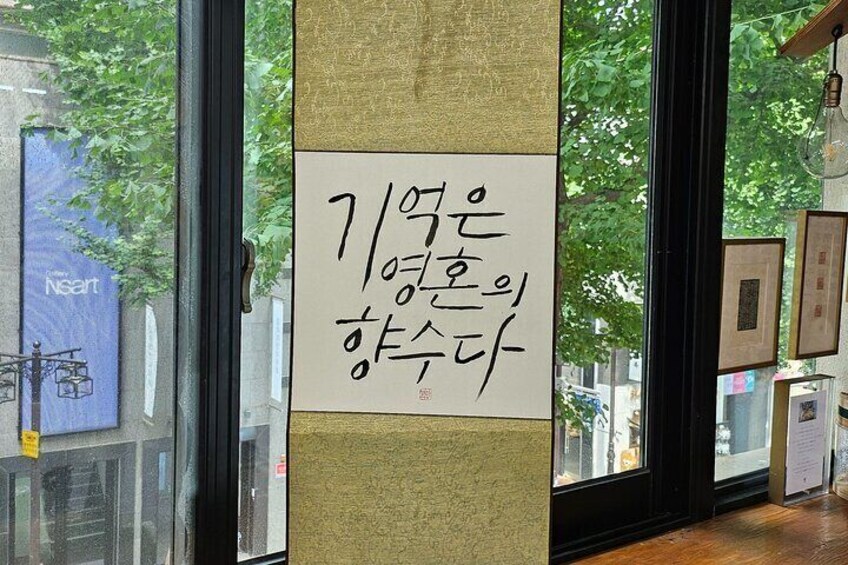 기억은
영혼의
향수다
Gallery
Insart